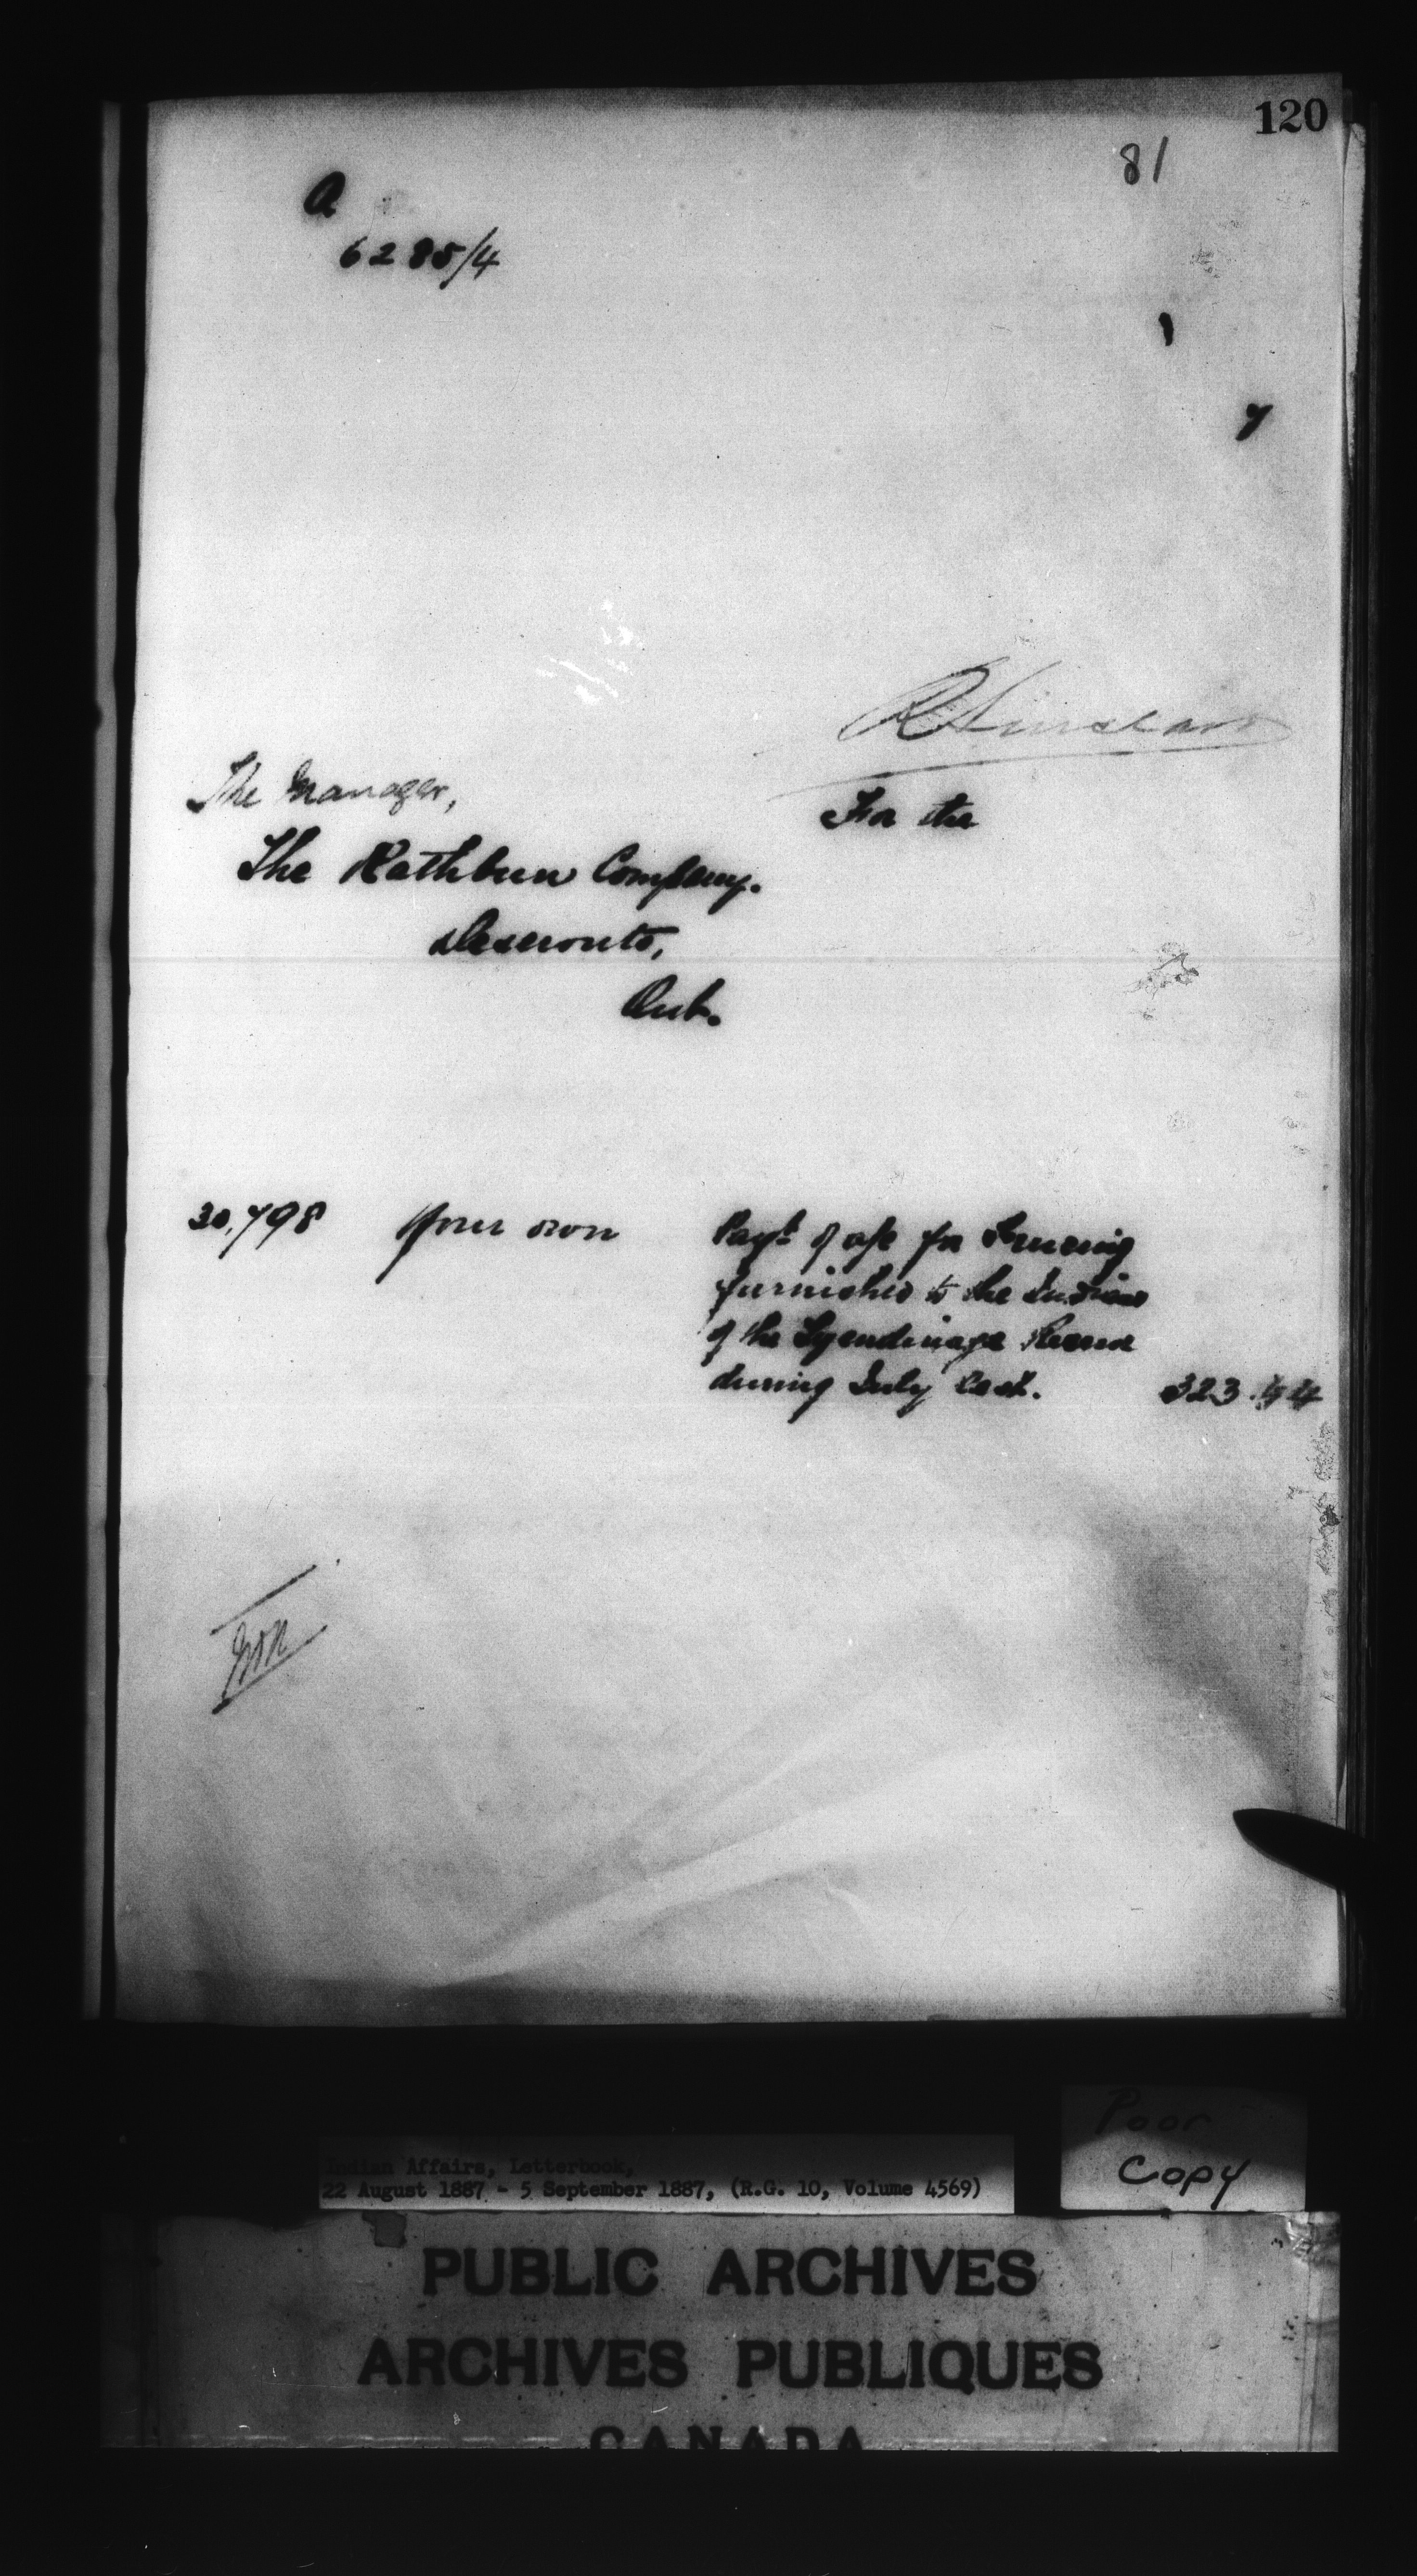 120
81
A
6285/4
1
7
R Sinclair
The Manager,
For the
The Rathbun Company.
Deseronto,
Ont.
30,798 Your own Payt. of a/c for Fencing
furnished to the Indians
of the Tyendinaga Reserve
during July last. 323.44
Poor
Copy
Indian Affairs, Letterbook,
22 August 1887 - 5 September 1887, (R.G. 10, Volume 4569)
PUBLIC ARCHIVES
ARCHIVES PUBLIQUES
CANADA